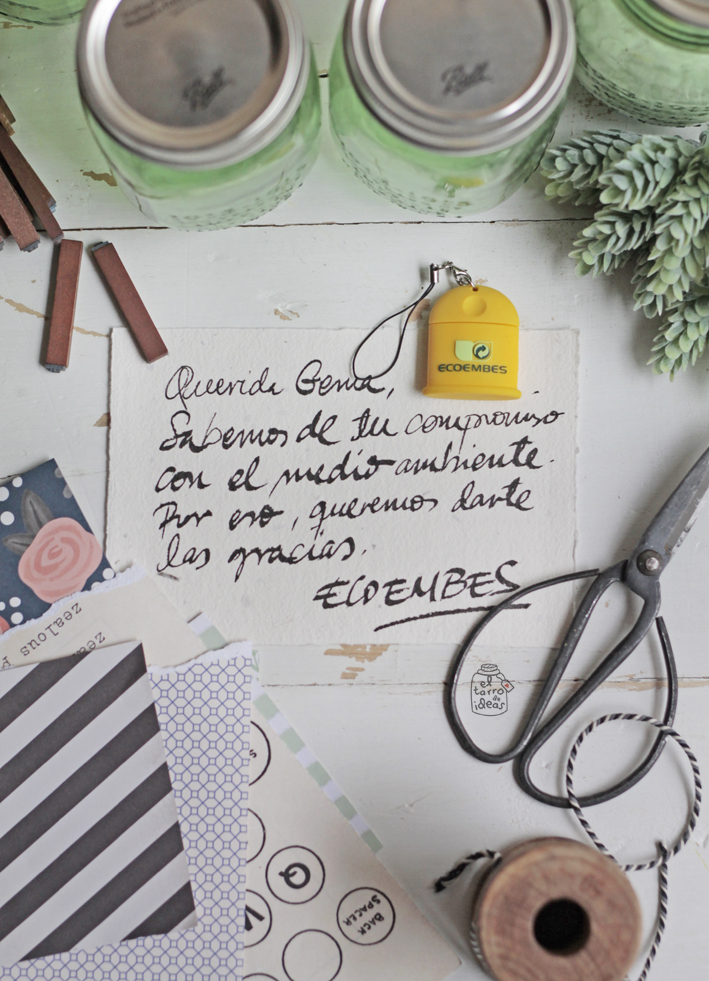 Ball
Ball
ECOEMBES
Querida Gema,
Sabemos de tu compromiso
con el medio ambiente.
Por eso, queremos darte
las gracias.
ECOEMBES
el
tarro
de
ideas
zealous
zealous
S
Q
BACK
SPACER